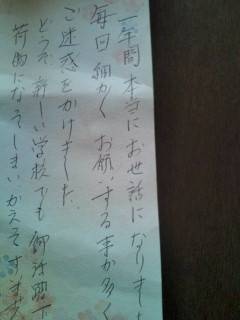 一年間本当にお世話になりまし
毎日細かくお願いする事が多く
ご迷惑をかけました。
どうぞ新しい学校でも御活躍下
荷物になってしまいかえってすみませ